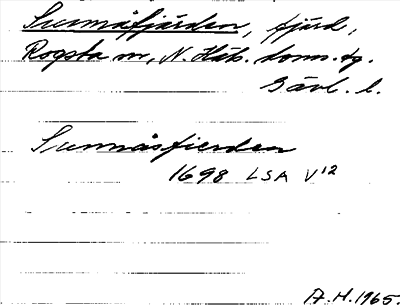 Sunnåfjärden, fjärd,
Rogsta sn, N. Häls. doms.-tg.
Gävl. l.
Sunnåsfierden
1698 LSA V¹²
A.H. 1965.